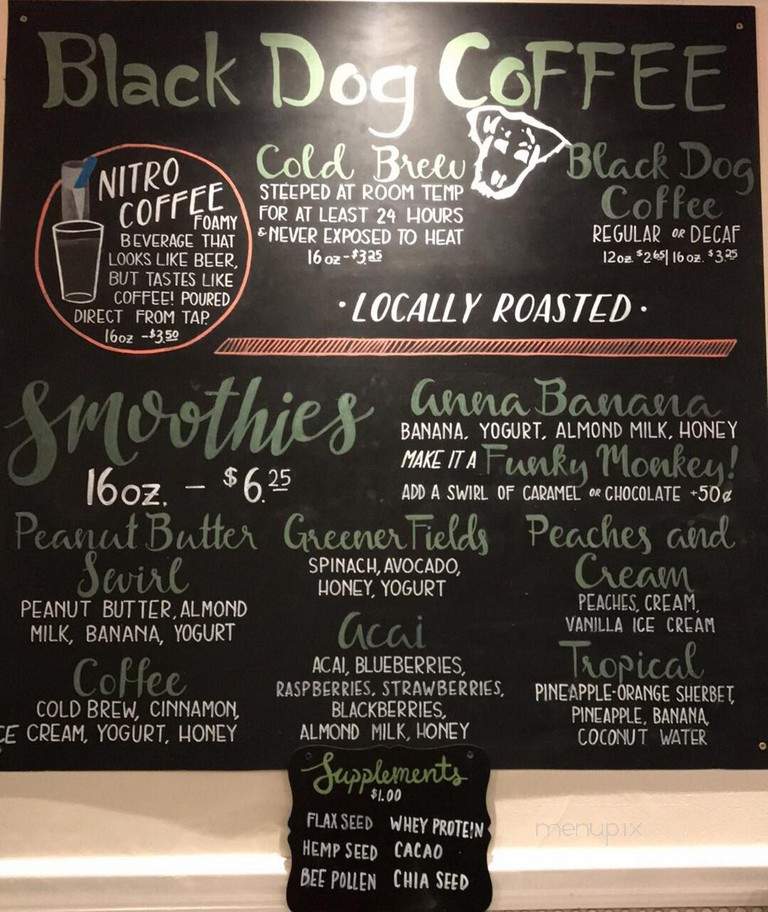 Black Dog COFFEE
NITRO
COFFEE
FOAMY
BEVERAGE THAT
LOOKS LIKE BEER,
BUT TASTES LIKE
COFFEE! POURED
DIRECT FROM TAP.
16oz -$3.50
Cold Brew
STEEPED AT ROOM TEMP
FOR AT LEAST 24 HOURS
& NEVER EXPOSED TO HEAT
16 oz-$3.25
Black Dog
Coffee
REGULAR OR DECAF
12oz. $2.65| 16 oz. $3.25
· LOCALLY ROASTED ·
Smoothies
16oz. - $6.25
Anna Banana
BANANA, YOGURT, ALMOND MILK, HONEY
MAKE IT A Funky Monkey!
ADD A SWIRL OF CARAMEL OR CHOCOLATE +50¢
Peanut Butter
Swirl
PEANUT BUTTER, ALMOND
MILK, BANANA, YOGURT
Coffee
COLD BREW, CINNAMON,
CE CREAM, YOGURT, HONEY
Greener Fields
SPINACH, AVOCADO,
HONEY, YOGURT
Acai
ACAI, BLUEBERRIES,
RASPBERRIES, STRAWBERRIES,
BLACKBERRIES,
ALMOND MILK, HONEY
Peaches and
Cream
PEACHES, CREAM,
VANILLA ICE CREAM
Tropical
PINEAPPLE-ORANGE SHERBET,
PINEAPPLE, BANANA,
COCONUT WATER
Supplements
$1.00
FLAX SEED WHEY PROTEIN
HEMP SEED CACAO
BEE POLLEN CHIA SEED
menupix